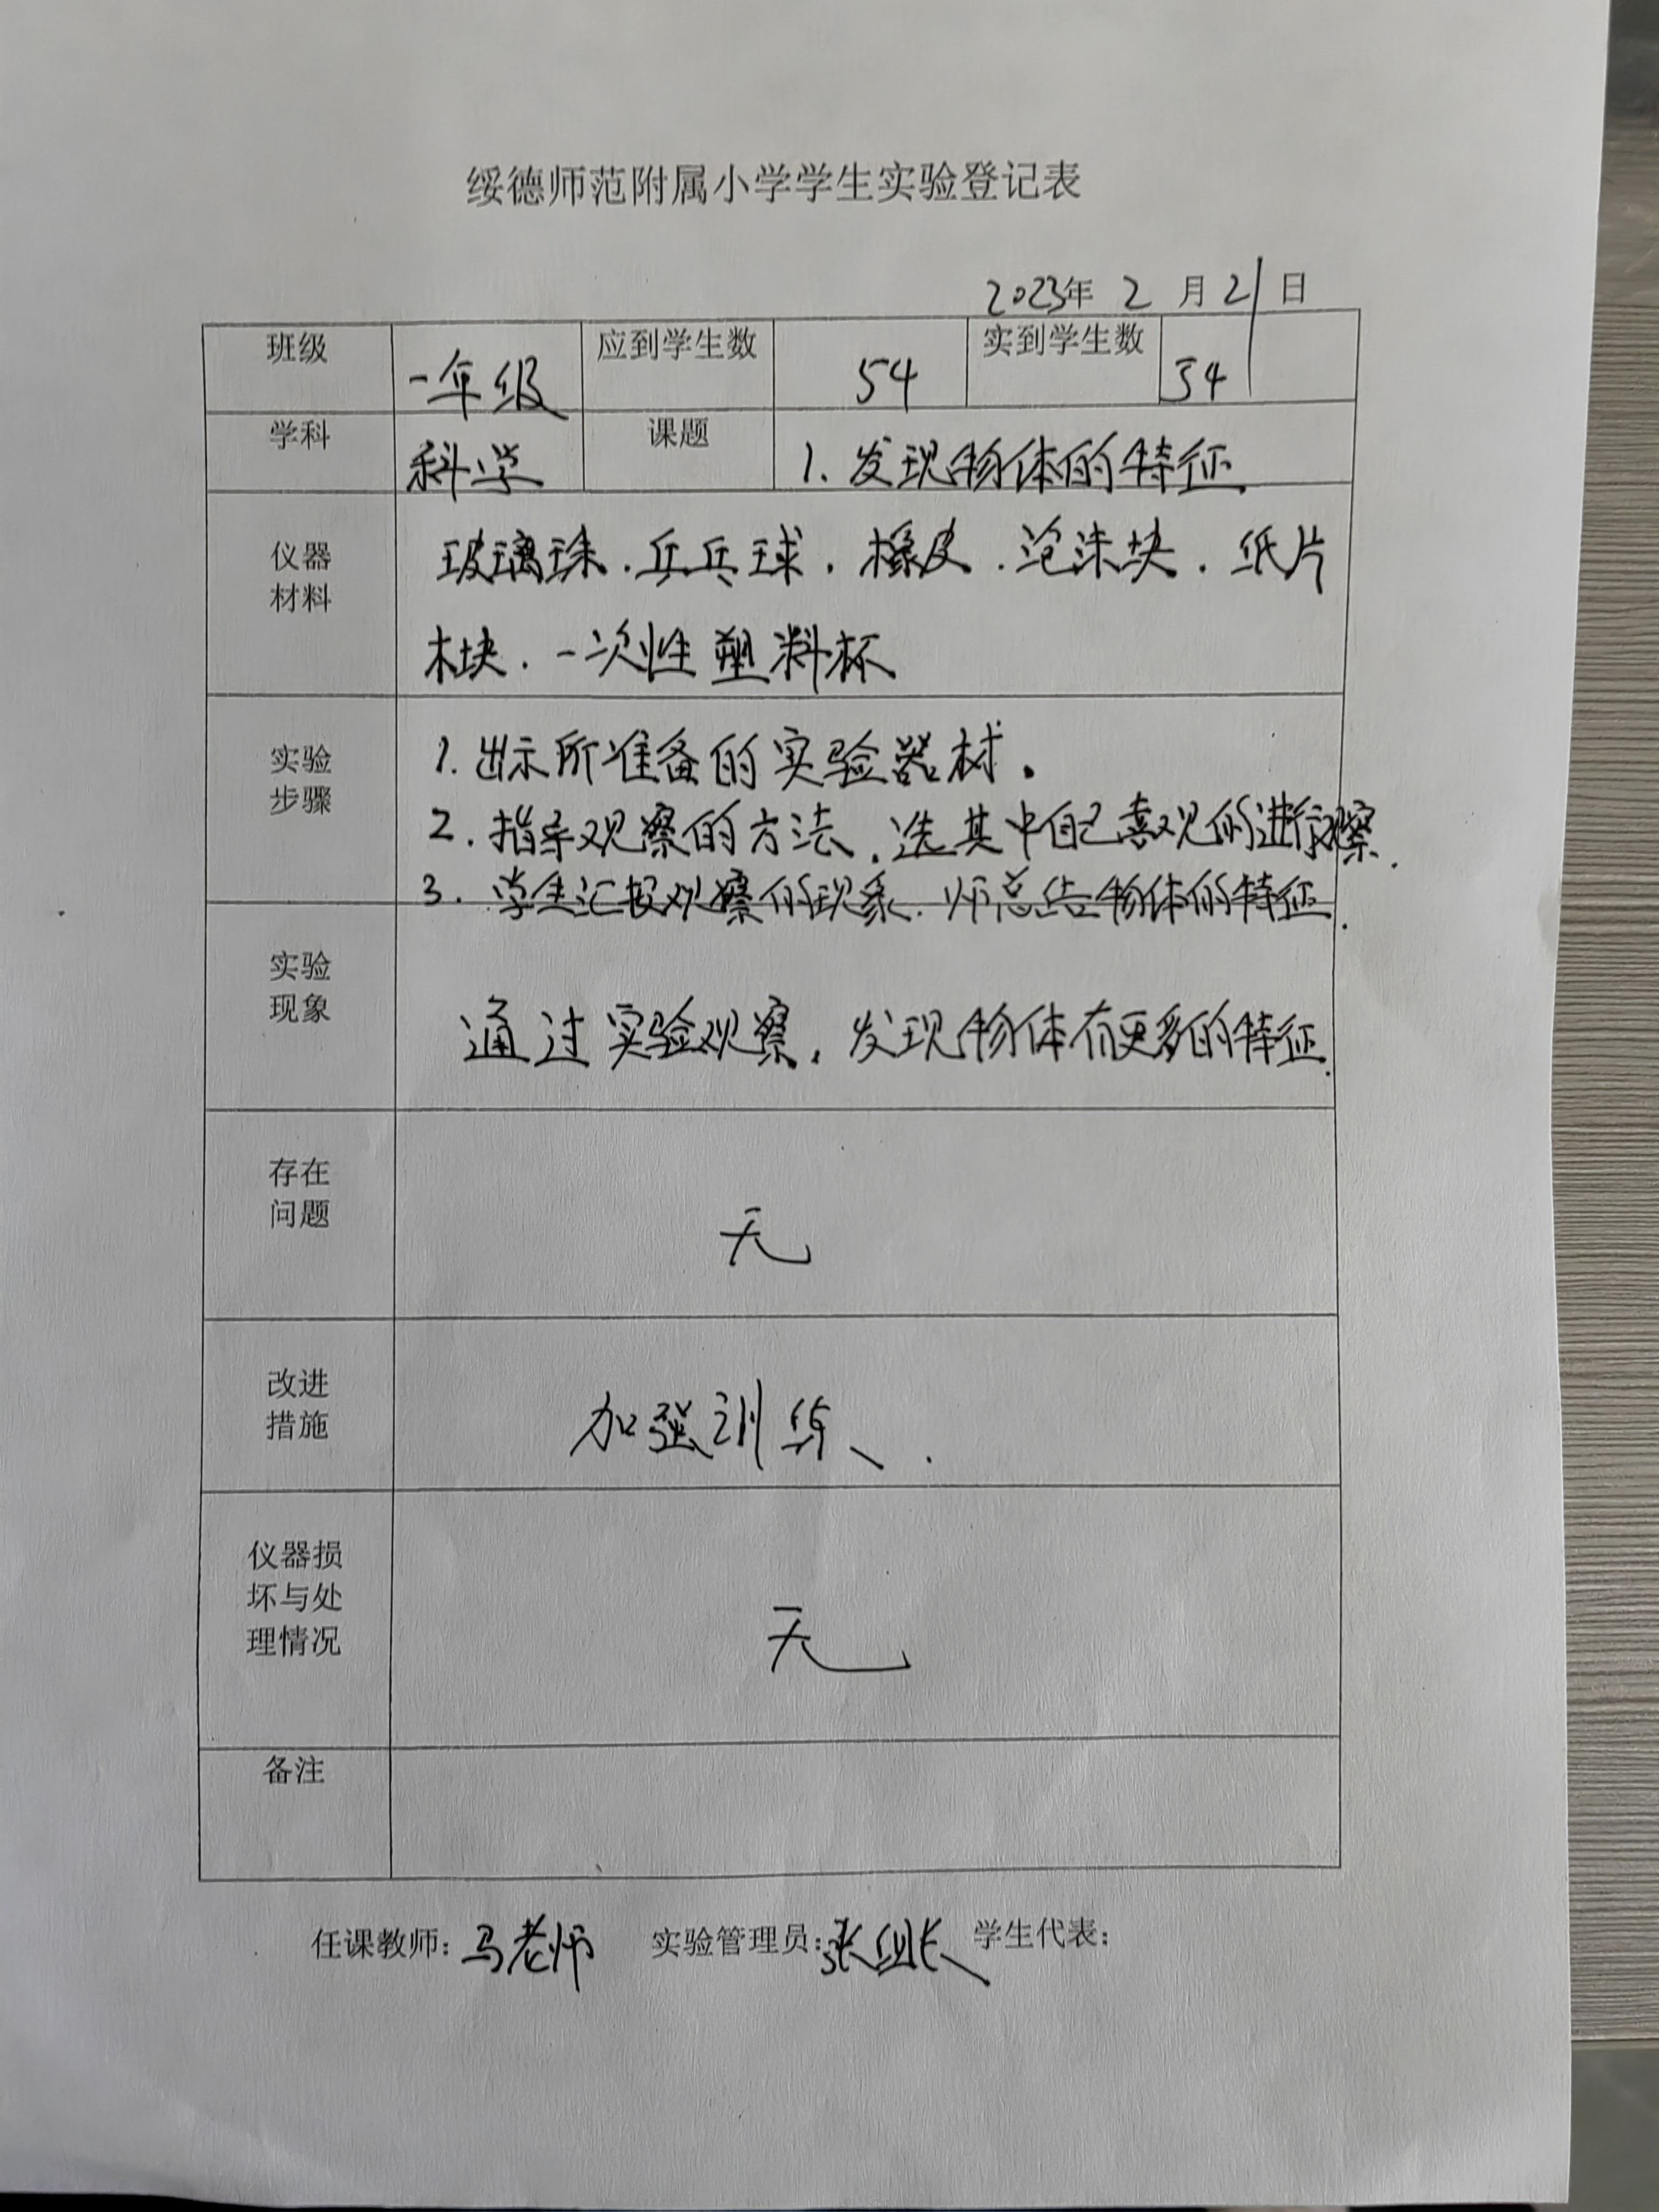 绥德师范附属小学学生实验登记表
2023年 2 月 21 日
班级 一年级 应到学生数 54 实到学生数 54
学科 科学 课题 1. 发现物体的特征.
仪器
材料
玻璃珠.乒乓球.橡皮.泡沫块.纸片
木块.一次性塑料杯
实验
步骤
1.出示所准备的实验器材.
2.指导观察的方法.选其中自己喜观的进行观察.
3.学生汇报观察的现象.师总结物体的特征.
实验
现象
通过实验观察.发现物体有更多的特征.
存在
问题
无
改进
措施
加强训练.
仪器损
坏与处
理情况
无
备注
任课教师:马老师 实验管理员:张组长 学生代表: